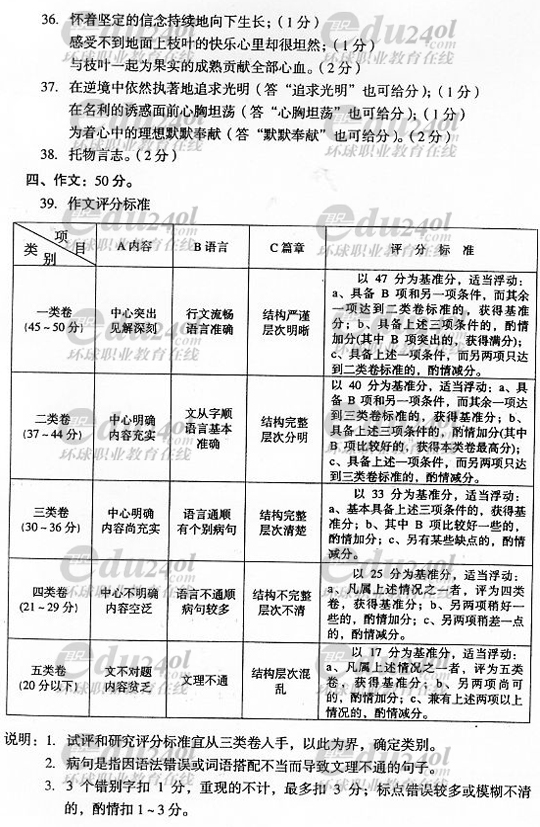 36. 怀着坚定的信念持续地向下生长；（1分）
感受不到地面上枝叶的快乐心里却很坦然；（1分）
与枝叶一起为果实的成熟贡献全部心血。（2分）
37. 在逆境中依然执著地追求光明（答“追求光明”也可给分）；（1分）
在名利的诱惑面前心胸坦荡（答“心胸坦荡”也可给分）；（1分）
为着心中的理想默默奉献（答“默默奉献”也可给分）。（2分）
38. 托物言志。（2分）
四、作文：50分。
39. 作文评分标准
项目
类别
A内容
B语言
C篇章
评分标准
一类卷
(45～50分)
中心突出
见解深刻
行文流畅
语言准确
结构严谨
层次明晰
以 47 分为基准分，适当浮动：
a、具备 B 项和另一项条件，而其余
一项达到二类卷标准的，获得基准
分；b、具备上述三项条件的，酌情
加分(其中 B 项突出的，获得满分)；
c、具备上述一项条件，而另两项只达
到二类卷标准的，酌情减分。
二类卷
(37～44分)
中心明确
内容充实
文从字顺
语言基本
准确
结构完整
层次分明
以 40 分为基准分，适当浮动：a、具
备 B 项和另一项条件，而其余一项达
到三类卷标准的，获得基准分；b、
具备上述三项条件的，酌情加分(其中
B 项比较好的，获得本类卷最高分)；
c、具备上述一项条件，而另两项只达
到三类卷标准的，酌情减分。
三类卷
(30～36分)
中心明确
内容尚充实
语言通顺
有个别病句
结构完整
层次清楚
以 33 分为基准分，适当浮动：
a、基本具备上述三项条件的，获得基
准分；b、其中 B 项比较好一些的，
酌情加分；c、另有某些缺点的，酌情
减分。
四类卷
(21～29分)
中心不明确
内容空泛
语言不通顺
病句较多
结构不完整
层次不清
以 25 分为基准分，适当浮动：
a、凡属上述情况之一者，评为四类
卷，获得基准分；b、另两项稍好一
些的，酌情加分；c、另两项稍差一点
的，酌情减分。
五类卷
(20分以下)
文不对题
内容贫乏
文理不通
结构层次混
乱
以 17 分为基准分，适当浮动：
a、凡属上述情况之一者，评为五类
卷，获得基准分；b、另两项尚可
的，酌情加分；c、兼有上述两项以上
情况的，酌情减分。
说明：1. 试评和研究评分标准宜从三类卷人手，以此为界，确定类别。
2. 病句是指因语法错误或词语搭配不当而导致文理不通的句子。
3. 3 个错别字扣 1 分，重现的不计，最多扣 3 分，标点错误较多或模糊不清
的，酌情扣 1～3 分。